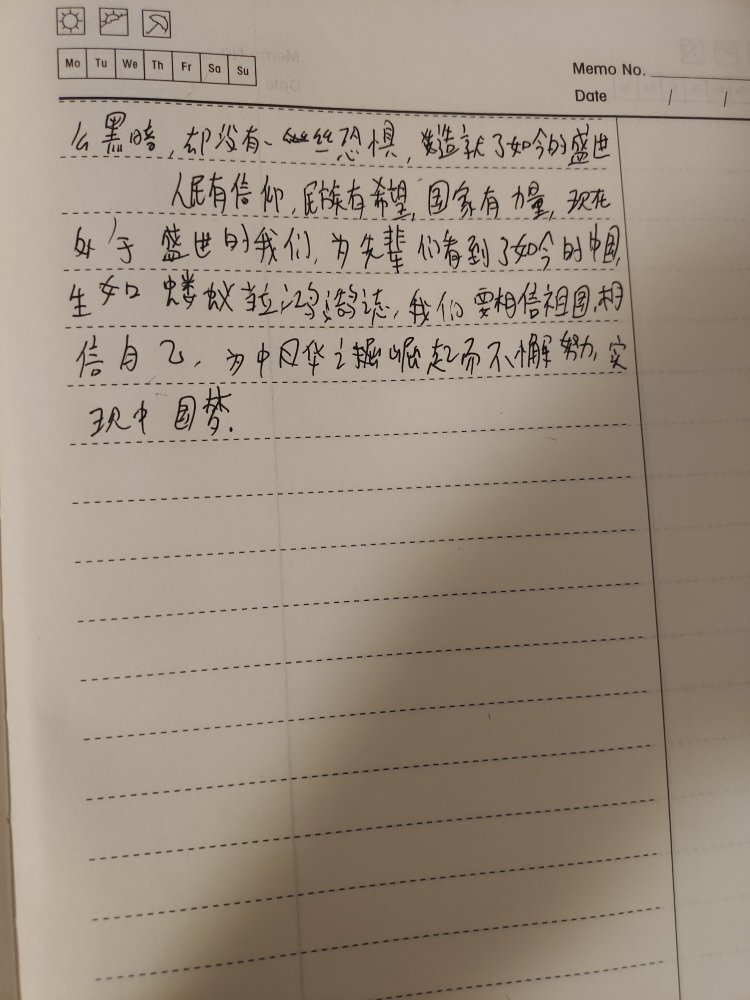 Mo Tu We Th Fr Sa Su
Memo No.
Date / /
么黑暗,却没有一丝恐惧,造就了如今的盛世
人民有信仰,民族有希望,国家有力量,现在
处于盛世的我们,为先辈们看到了如今的中国,
生如蝼蚁当立鸿鹄志,我们要相信祖国,相
信自己,为中华之崛起而不懈努力,实
现中国梦.